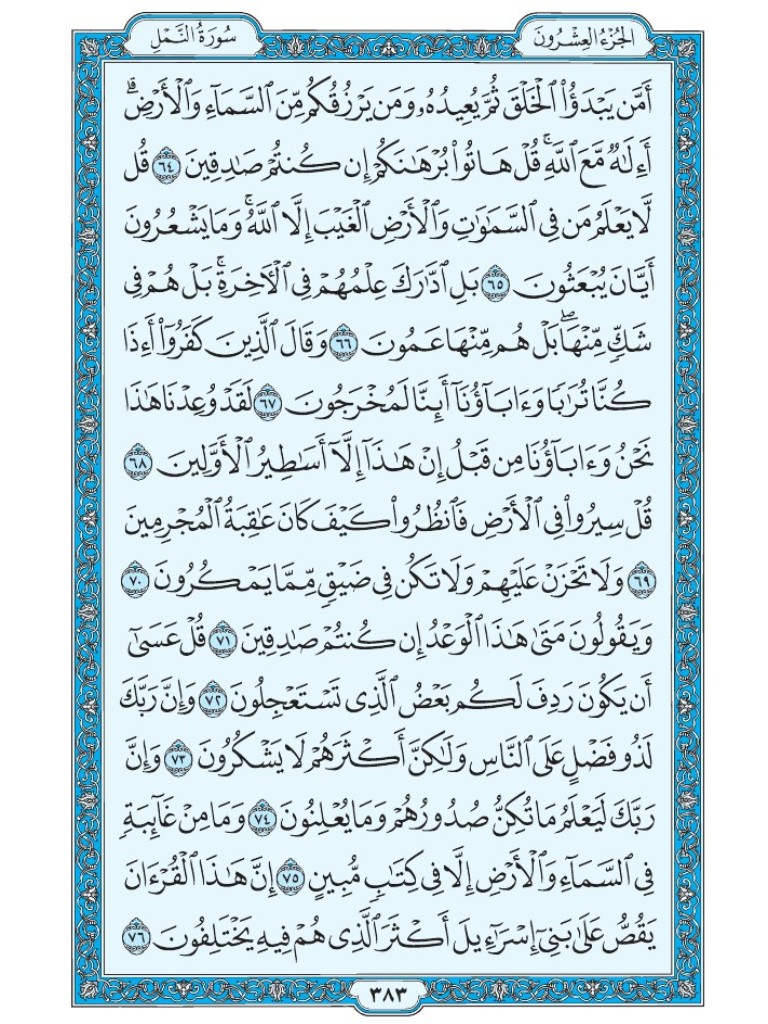 الجُزْءُ العِشْرُونَ
سُورَةُ النَّمْلِ
أَمَّن يَبْدَؤُاْ ٱلْخَلْقَ ثُمَّ يُعِيدُهُۥ وَمَن يَرْزُقُكُم مِّنَ ٱلسَّمَآءِ وَٱلْأَرْضِۗ
أَءِلَٰهٌ مَّعَ ٱللَّهِۚ قُلْ هَاتُواْ بُرْهَٰنَكُمْ إِن كُنتُمْ صَٰدِقِينَ ٦٤ قُل
لَّا يَعْلَمُ مَن فِى ٱلسَّمَٰوَٰتِ وَٱلْأَرْضِ ٱلْغَيْبَ إِلَّا ٱللَّهُۚ وَمَا يَشْعُرُونَ
أَيَّانَ يُبْعَثُونَ ٦٥ بَلِ ٱدَّٰرَكَ عِلْمُهُمْ فِى ٱلْءَاخِرَةِۚ بَلْ هُمْ فِى
شَكٍّ مِّنْهَاۖ بَلْ هُم مِّنْهَا عَمُونَ ٦٦ وَقَالَ ٱلَّذِينَ كَفَرُوٓاْ أَءِذَا
كُنَّا تُرَٰبًا وَءَابَآؤُنَآ أَئِنَّا لَمُخْرَجُونَ ٦٧ لَقَدْ وُعِدْنَا هَٰذَا
نَحْنُ وَءَابَآؤُنَا مِن قَبْلُ إِنْ هَٰذَآ إِلَّآ أَسَٰطِيرُ ٱلْأَوَّلِينَ ٦٨
قُلْ سِيرُواْ فِى ٱلْأَرْضِ فَٱنظُرُواْ كَيْفَ كَانَ عَٰقِبَةُ ٱلْمُجْرِمِينَ
٦٩ وَلَا تَحْزَنْ عَلَيْهِمْ وَلَا تَكُن فِى ضَيْقٍ مِّمَّا يَمْكُرُونَ ٧٠
وَيَقُولُونَ مَتَىٰ هَٰذَا ٱلْوَعْدُ إِن كُنتُمْ صَٰدِقِينَ ٧١ قُلْ عَسَىٰٓ
أَن يَكُونَ رَدِفَ لَكُم بَعْضُ ٱلَّذِى تَسْتَعْجِلُونَ ٧٢ وَإِنَّ رَبَّكَ
لَذُو فَضْلٍ عَلَى ٱلنَّاسِ وَلَٰكِنَّ أَكْثَرَهُمْ لَا يَشْكُرُونَ ٧٣ وَإِنَّ
رَبَّكَ لَيَعْلَمُ مَا تُكِنُّ صُدُورُهُمْ وَمَا يُعْلِنُونَ ٧٤ وَمَا مِنْ غَآئِبَةٍ
فِى ٱلسَّمَآءِ وَٱلْأَرْضِ إِلَّا فِى كِتَٰبٍ مُّبِينٍ ٧٥ إِنَّ هَٰذَا ٱلْقُرْءَانَ
يَقُصُّ عَلَىٰ بَنِىٓ إِسْرَٰٓءِيلَ أَكْثَرَ ٱلَّذِى هُمْ فِيهِ يَخْتَلِفُونَ ٧٦
٣٨٣